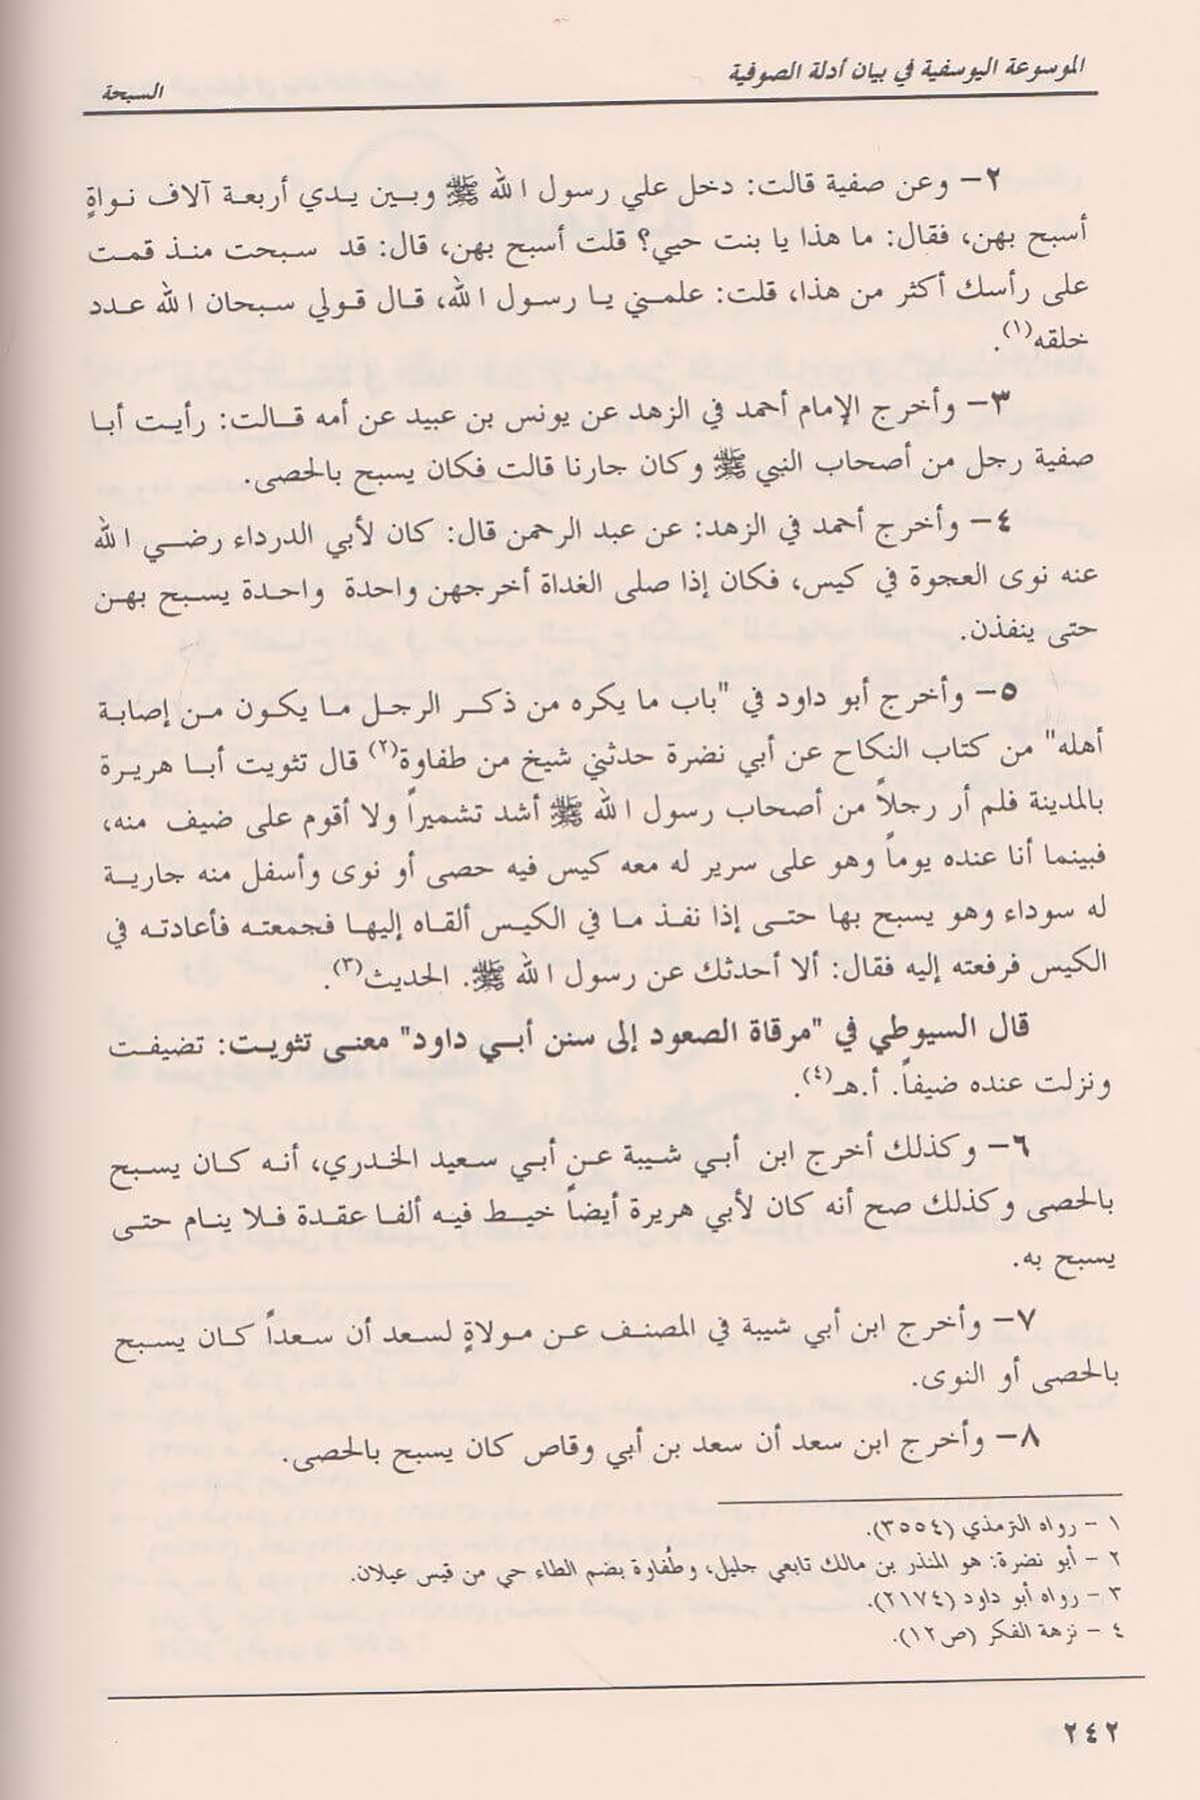 الموسوعة اليوسفية في بيان أدلة الصوفية
السبحة
٢- وعن صفية قالت: دخل علي رسول الله ﷺ وبين يدي أربعة آلاف نواةٍ
أسبح بهن، فقال: ما هذا يا بنت حيي؟ قلت أسبح بهن، قال: قد سبحت منذ قمت
على رأسك أكثر من هذا، قلت: علمني يا رسول الله، قال قولي سبحان الله عدد
خلقه(١).
٣- وأخرج الإمام أحمد في الزهد عن يونس بن عبيد عن أمه قالت: رأيت أبا
صفية رجل من أصحاب النبي ﷺ وكان جارنا قالت فكان يسبح بالحصى.
٤- وأخرج أحمد في الزهد: عن عبد الرحمن قال: كان لأبي الدرداء رضي الله
عنه نوى العجوة في كيس، فكان إذا صلى الغداة أخرجهن واحدة واحدة يسبح بهن
حتى ينفذن.
٥- وأخرج أبو داود في "باب ما يكره من ذكر الرجل ما يكون من إصابة
أهله" من كتاب النكاح عن أبي نضرة حدثني شيخ من طفاوة(٢) قال تثويت أبا هريرة
بالمدينة فلم أر رجلاً من أصحاب رسول الله ﷺ أشد تشميراً ولا أقوم على ضيف منه،
فبينما أنا عنده يوماً وهو على سرير له معه كيس فيه حصى أو نوى وأسفل منه جارية
له سوداء وهو يسبح بها حتى إذا نفذ ما في الكيس ألقاه إليها فجمعته فأعادته في
الكيس فرفعته إليه فقال: ألا أحدثك عن رسول الله ﷺ. الحديث(٣).
قال السيوطي في "مرقاة الصعود إلى سنن أبي داود" معنى تثويت: تضيفت
ونزلت عنده ضيفاً. أ.هـ(٤).
٦- وكذلك أخرج ابن أبي شيبة عن أبي سعيد الخدري، أنه كان يسبح
بالحصى وكذلك صح أنه كان لأبي هريرة أيضاً خيط فيه ألفا عقدة فلا ينام حتى
يسبح به.
٧- وأخرج ابن أبي شيبة في المصنف عن مولاةٍ لسعد أن سعداً كان يسبح
بالحصى أو النوى.
٨- وأخرج ابن سعد أن سعد بن أبي وقاص كان يسبح بالحصى.
١ - رواه الترمذي (٣٥٥٤).
٢ - أبو نضرة: هو المنذر بن مالك تابعي جليل، وطُفاوة بضم الطاء حي من قيس عيلان.
٣ - رواه أبو داود (٢١٧٤).
٤ - نزهة الفكر (ص١٢).
٢٤٢